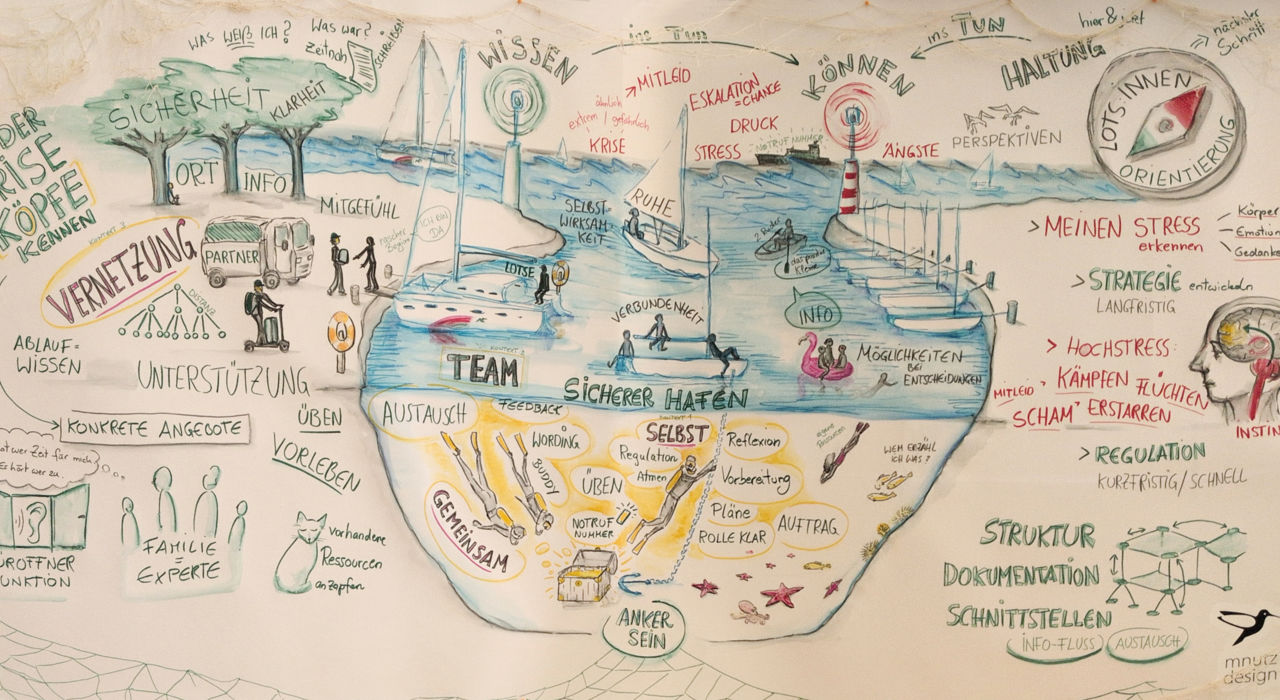 WAS WEIß ICH?
Was war?
zeitnah
SCHREIBEN!
WISSEN
ins TUN
KÖNNEN
ins TUN
hier & jetzt
nächster
Schritt
HALTUNG
SICHERHEIT
KLARHEIT
ORT
INFO
KÖPFE
KENNEN
MITLEID
ähnlich
extrem / gefährlich
KRISE
ESKALATION
= CHANCE
DRUCK
STRESS
NOTRUFNUMMER
ÄNGSTE
PERSPEKTIVEN
LOTS:INNEN
ORIENTIERUNG
MITGEFÜHL
ICH BIN
DA
KONTEXT 3
VERNETZUNG
PARTNER
DISTANZ
SELBST-
WIRKSAM-
KEIT
RUHE
LOTSE
2 Ruder
INFO
VERBUNDENHEIT
MÖGLICHKEITEN
BEI
ENTSCHEIDUNGEN
KONTEXT 2
TEAM
SICHERER HAFEN
> MEINEN STRESS
erkennen
> STRATEGIE entwickeln
LANGFRISTIG
> HOCHSTRESS:
MITLEID
KÄMPFEN FLÜCHTEN
SCHAM ERSTARREN
> REGULATION
KURZFRISTIG / SCHNELL
ABLAUF-
WISSEN
UNTERSTÜTZUNG
KONKRETE ANGEBOTE
ÜBEN
VORLEBEN
FAMILIE =
EXPERTE
vorhandene
Ressourcen
anzapfen
AUSTAUSCH
FEEDBACK
WORDING
BUDDY
GEMEINSAM
KONTEXT 1
SELBST
Regulation
Atmen
ÜBEN
NOTRUF
NUMMER
Reflexion
Vorbereitung
Pläne
ROLLE KLAR
AUFTRAG
eigene
Ressourcen
WEM ERZÄHL
ICH WAS?
ANKER
SEIN
STRUKTUR
DOKUMENTATION
SCHNITTSTELLEN
INFO-FLUSS
AUSTAUSCH
mnutz
design